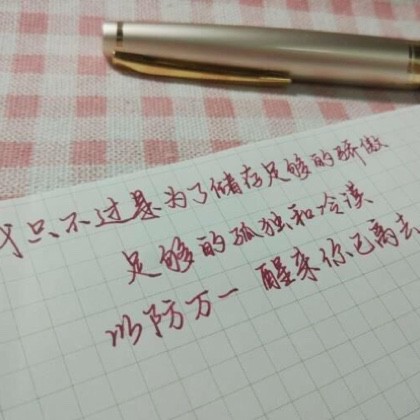 我只不过是为了储存足够的骄傲
足够的孤独和冷漠
以防万一 醒来你已离去